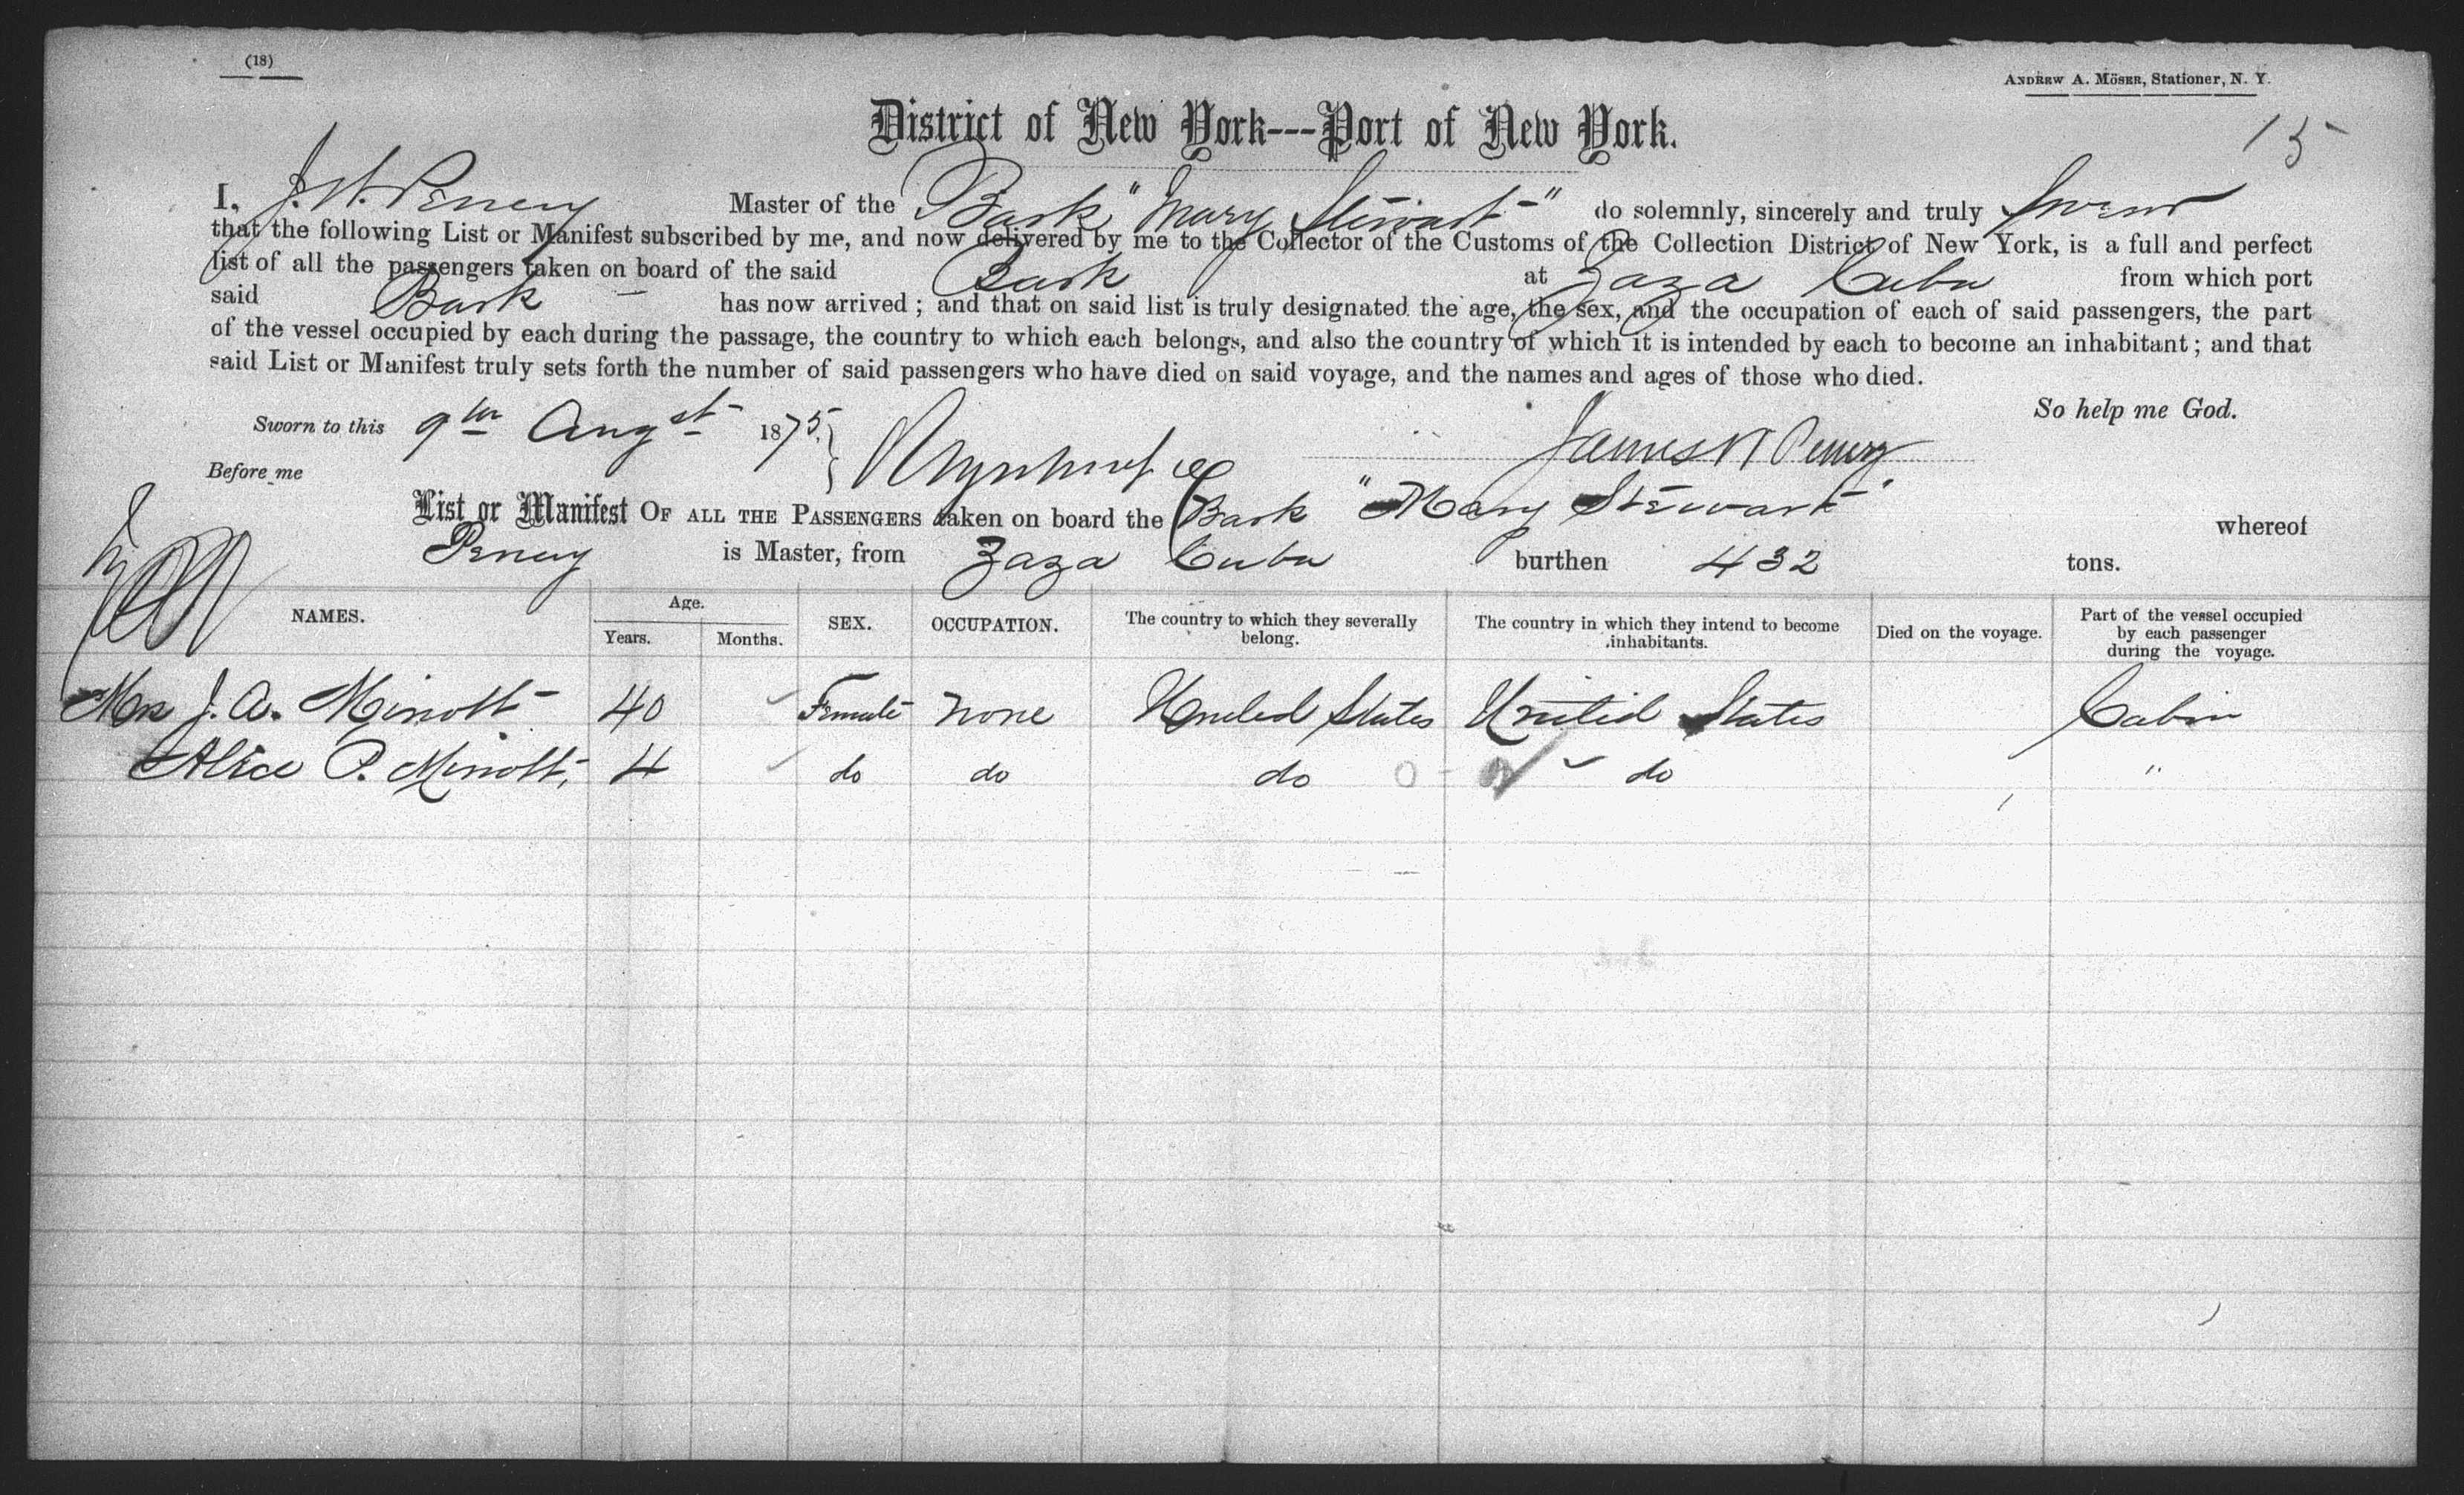 (18)
ANDREW A. MÖSER, Stationer, N. Y.
District of New York---Port of New York.
15
I, J. N. Penery Master of the Bark "Mary Stewart" do solemnly, sincerely and truly Swear
that the following List or Manifest subscribed by me, and now delivered by me to the Collector of the Customs of the Collection District of New York, is a full and perfect
list of all the passengers taken on board of the said Bark at Zaza Cuba from which port
said Bark has now arrived; and that on said list is truly designated the age, the sex, and the occupation of each of said passengers, the part
of the vessel occupied by each during the passage, the country to which each belongs, and also the country of which it is intended by each to become an inhabitant; and that
said List or Manifest truly sets forth the number of said passengers who have died on said voyage, and the names and ages of those who died.
So help me God.
Sworn to this 9th Augst 1875. James N Penery
Before me
List or Manifest OF ALL THE PASSENGERS taken on board the Bark "Mary Stewart" whereof
Penery is Master, from Zaza Cuba burthen 432 tons.
NAMES. Age. Years. Months. SEX. OCCUPATION. The country to which they severally belong. The country in which they intend to become inhabitants. Died on the voyage. Part of the vessel occupied by each passenger during the voyage.
Mrs J. A. Minott 40 Female None United States United States Cabin
Alice P. Minott, 4 do do do do "